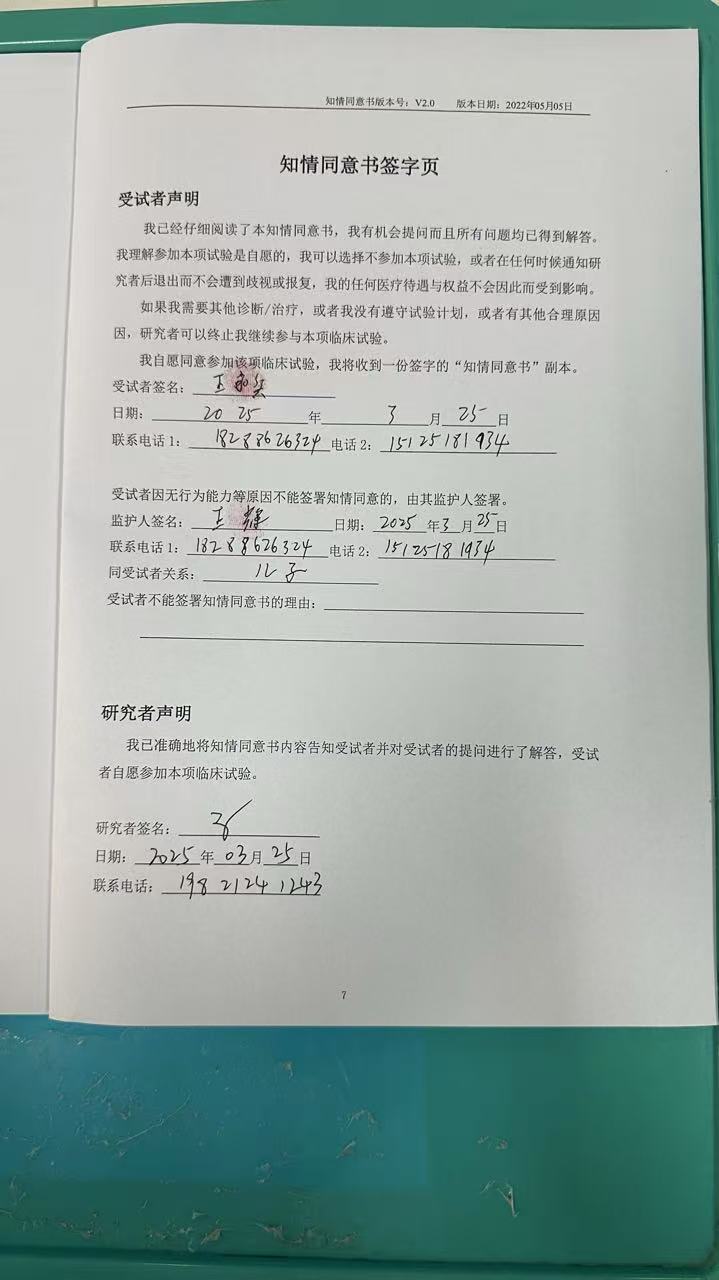 知情同意书版本号：V2.0 版本日期：2022年05月05日
知情同意书签字页
受试者声明
我已经仔细阅读了本知情同意书，我有机会提问而且所有问题均已得到解答。
我理解参加本项试验是自愿的，我可以选择不参加本项试验，或者在任何时候通知研
究者后退出而不会遭到歧视或报复，我的任何医疗待遇与权益不会因此而受到影响。
如果我需要其他诊断/治疗，或者我没有遵守试验计划，或者有其他合理原因
因，研究者可以终止我继续参与本项临床试验。
我自愿同意参加该项临床试验，我将收到一份签字的“知情同意书”副本。
受试者签名：王
日期：2025年3月25日
联系电话1：18288626324 电话2：15125181934
受试者因无行为能力等原因不能签署知情同意的，由其监护人签署。
监护人签名：王 日期：2025年3月25日
联系电话1：18288626324 电话2：15125181934
同受试者关系：儿子
受试者不能签署知情同意书的理由：
研究者声明
我已准确地将知情同意书内容告知受试者并对受试者的提问进行了解答，受试
者自愿参加本项临床试验。
研究者签名：
日期：2025年03月25日
联系电话：19821241243
7